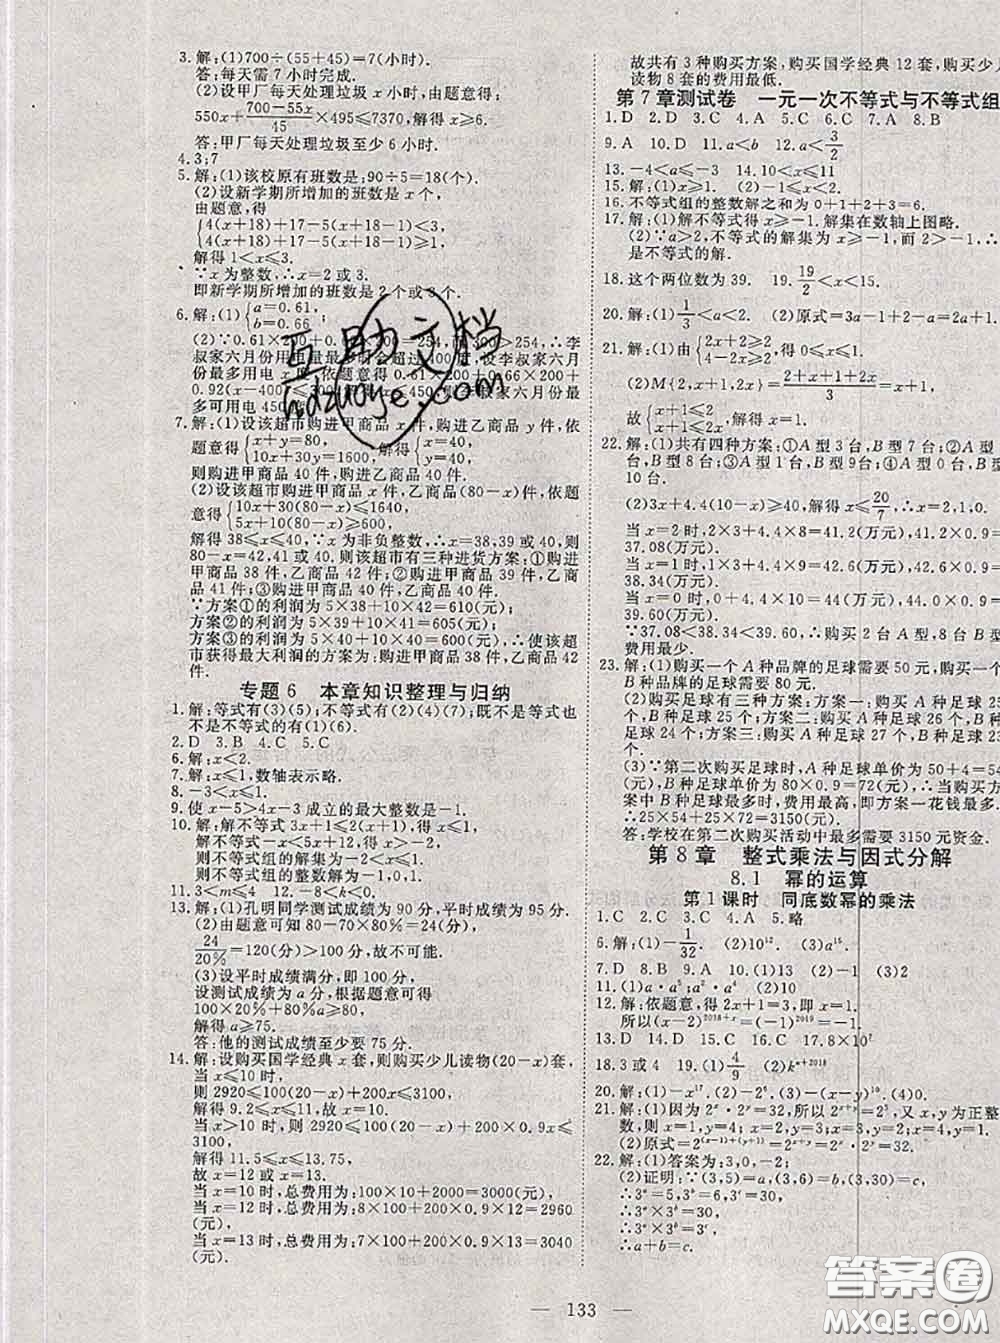 3.解:(1)700÷(55+45)=7(小时).
答:每天需7小时完成.
(2)设甲厂每天处理垃圾x小时,由题意得:
550x+(700-55x)/45×495≤7370,解得x≥6.
答:甲厂每天处理垃圾至少6小时.
4.3;7
5.解:(1)该校原有班数是:90÷5=18(个).
(2)设新学期所增加的班数是x个,
由题意,得
{4(x+18)+17-5(x+17)<3,
4(x+18)+17-5(x+17)≥1,
解得1<x≤3.
∵x为整数,∴x=2或3.
即新学期所增加的班数是2个或3个.
6.解:(1){a=0.61,
b=0.66
(2)∵0.61×200+0.66×200=254,∴李
叔家六月份用电量最多时会超过400度,设李叔家六月
份最多用电x度,依题意得200×0.61+200×0.66+
0.92(x-400)≤300,解得x≤450,则李叔家六月份最
多可用电450度.
7.解:(1)设该超市购进甲商品x件,购进乙商品y件,依
题意得{x+y=80,
10x+30y=1600,解得{x=40,
y=40.
则购进甲商品40件,购进乙商品40件.
(2)设该超市购进甲商品x件,乙商品(80-x)件,依题
意得{10x+30(80-x)≤1640,
5x+10(80-x)≥600.
解得38≤x≤40.∵x为非负整数,∴x=38,39或40,
80-x=42.41或40.则该超市有三种进货方案:①购进
甲商品38件,乙商品42件;②购进甲商品39件,乙商
品41件;③购进甲商品40件,乙商品40件.
∵方案①的利润为5×38+10×42=610(元);
方案②的利润为5×39+10×41=605(元);
方案③的利润为5×40+10×40=600(元),∴使该超
市获得最大利润的方案为:购进甲商品38件,乙商品42
件.
专题6 本章知识整理与归纳
1.解:等式有(3)(5);不等式有(2)(4)(7);既不是等式也
不是不等式的有(1)(6).
2.D 3.B 4.C 5.C
6.解:x<2.
7.解:x≤1,数轴表示略.
8.-3<x≤1
9.使x-5>4x-3成立的最大整数是-1.
10.解:解不等式3x+1≤2(x+1),得x≤1,
解不等式-x<5x+12,得x>-2,
则不等式组的解集为-2<x≤1,
则不等式组的整数解为-1,0,1.
11.3<m≤4 12.-6<k<0
13.解:(1)孔明同学测试成绩为90分,平时成绩为95分.
(2)由题意可知80-70×80%=24(分),
24/20%=120(分)>100分,故不可能.
(3)设平时成绩满分,即100分,
设测试成绩为a分,根据题意可得
100×20%+80%a≥80,
解得a≥75.
答:他的测试成绩至少要75分.
14.解:设购买国学经典x套,则购买少儿读物(20-x)套,
当x≤10时,
则2920≤100x+200(20-x)≤3100,
解得9.2≤x≤11,故x=10;
当x>10时,则2920≤100(20-x)+200×0.9x≤
3100,
解得11.5≤x≤13.75,
故x=12或x=13.
当x=10时,总费用为:10×100+10×200=3000(元);
当x=12时,总费用为:8×100+200×0.9×12=2960
(元),
当x=13时,总费用为:7×100+200×0.9×13=3040
(元).
故共有3种购买方案,购买国学经典12套,购买少儿
读物8套的费用最低.
第7章测试卷 一元一次不等式与不等式组
1.D 2.D 3.C 4.A 5.C 6.C 7.A 8.B
9.A 10.D 11.a<b 12.a<3/2
13.-4<a<-3 14.10<x≤
15.解:(1)x≥1. (2)-1≤x<2.
16.不等式组的整数解之和为0+1+2+3=6.
17.解:(1)解不等式得x≥-1.解集在数轴上图略.
(2)∵a>2,不等式的解集为x≥-1,而
是不等式的解.
18.这个两位数为39. 19.19/2<x<
20.解:(1)1/3<a<2. (2)原式=3a-1+2-a=2a+1.
21.解:(1)由{2x+2≥2
4-2x≥2,得0≤x≤1.
(2)M{2,x+1,2x}=(2+x+1+2x)/3=x+1,
故{x+1≤2
x+1≤2x,解得x=1.
22.解:(1)共有四种方案:①A型3台,B型7台;②A型2台,
B型8台;③A型1台,B型9台;④A型0台,B型
10台.
(2)3x+4.4(10-x)≥40,解得x≤20/7,∴x=2,1,0.
当x=2时,2×3+4.4×8=41.2(万元),41.2×0.9=
37.08(万元).
当x=1时,1×3+4.4×9=42.6(万元),42.6×0.9=
38.34(万元).
当x=0时,0×3+4.4×10=44(万元),44×0.9=
39.60(万元).
∵37.08<38.34<39.60,∴购买2台A型,8台B型
费用最少.
23.解:(1)购买一个A种品牌的足球需要50元,购买一个
B种品牌的足球需要80元.
(2)购买足球有三种方案:方案一:购买A种足球25
个,B种足球25个;方案二:购买A种足球26个,B种
足球24个;方案三:购买A种足球27个,B种足球
23个.
(3)∵第二次购买足球时,A种足球单价为50+4=54
(元),B种足球单价为80×0.9=72(元),∴当购买
B种足球最多时,费用最高,即方案一花钱最多.
∴25×54+25×72=3150(元).
答:学校在第二次购买活动中最多需要3150元资金.
第8章 整式乘法与因式分解
8.1 幂的运算
第1课时 同底数幂的乘法
1.C 2.C 3.B 4.A 5.略
6.解:(1)-1/32 (2)10¹². (3)a¹⁵.
7.D 8.B 9.A 10.(1)7 (2)-1 (3)2
11.(1)a·a⁵;a²·a⁴ (2)10
12.解:依题意,得2x+1=3,即x=1.
所以(x-2)²⁰¹⁸⁺ˣ=(-1)²⁰¹⁹=-1.
13.D 14.D 15.C 16.C 17.8×10⁷
18.3或4 19.(1)4/9 (2)kⁿ⁺²⁰¹⁸
20.解:(1)-x¹⁷. (2)-2⁶. (3)-(x-y)¹⁰. (4)0.
21.解:(1)因为2ˣ·2ʸ=32,所以2ˣ⁺ʸ=2⁵,又x,y为正整
数,则x=1,y=4;x=2,y=3;x=3,y=2;x=4,y=1.
(2)原式=2⁽ˣ⁻¹⁾⁺⁽ʸ⁺¹⁾=2ˣ⁺ʸ=2ˣ·2ʸ=32.
22.解:(1)答案为:3,0,-2;
(2)证明:∵(3,5)=a,(3,6)=b,(3,30)=c,
∴3ᵃ=5,3ᵇ=6,3ᶜ=30,
∴3ᵃ×3ᵇ=30,
∴3ᵃ×3ᵇ=3ᶜ,
∴a+b=c.
互助文档
hdzuoye.com
133
答案圈
MXQE.COM